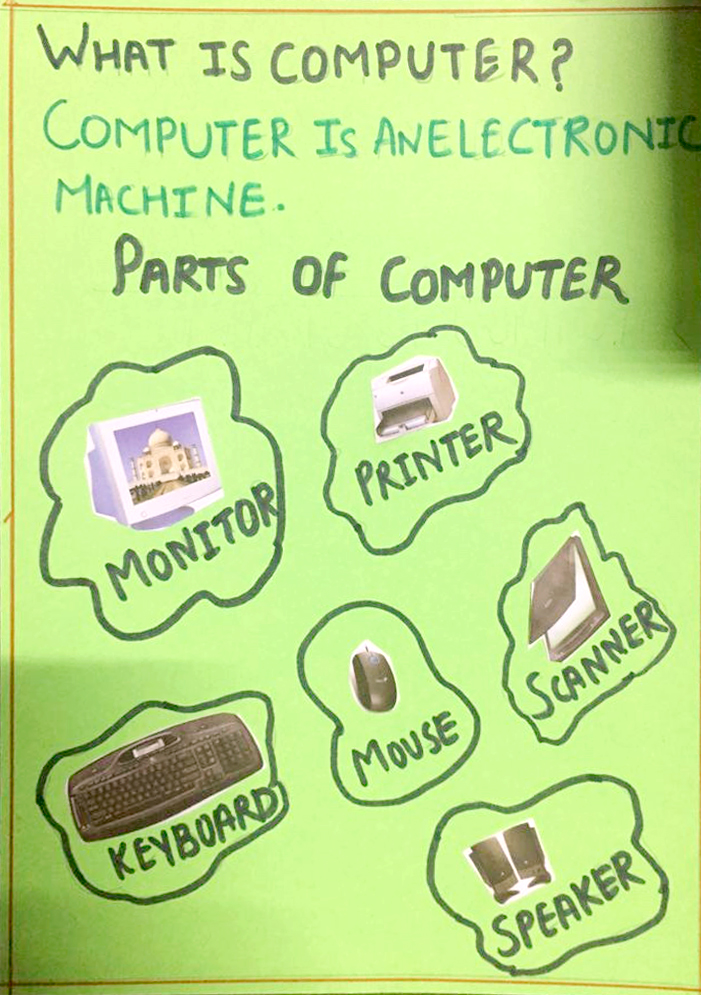 WHAT IS COMPUTER?
COMPUTER IS AN ELECTRONIC
MACHINE.
PARTS OF COMPUTER
MONITOR
PRINTER
SCANNER
MOUSE
KEYBOARD
SPEAKER